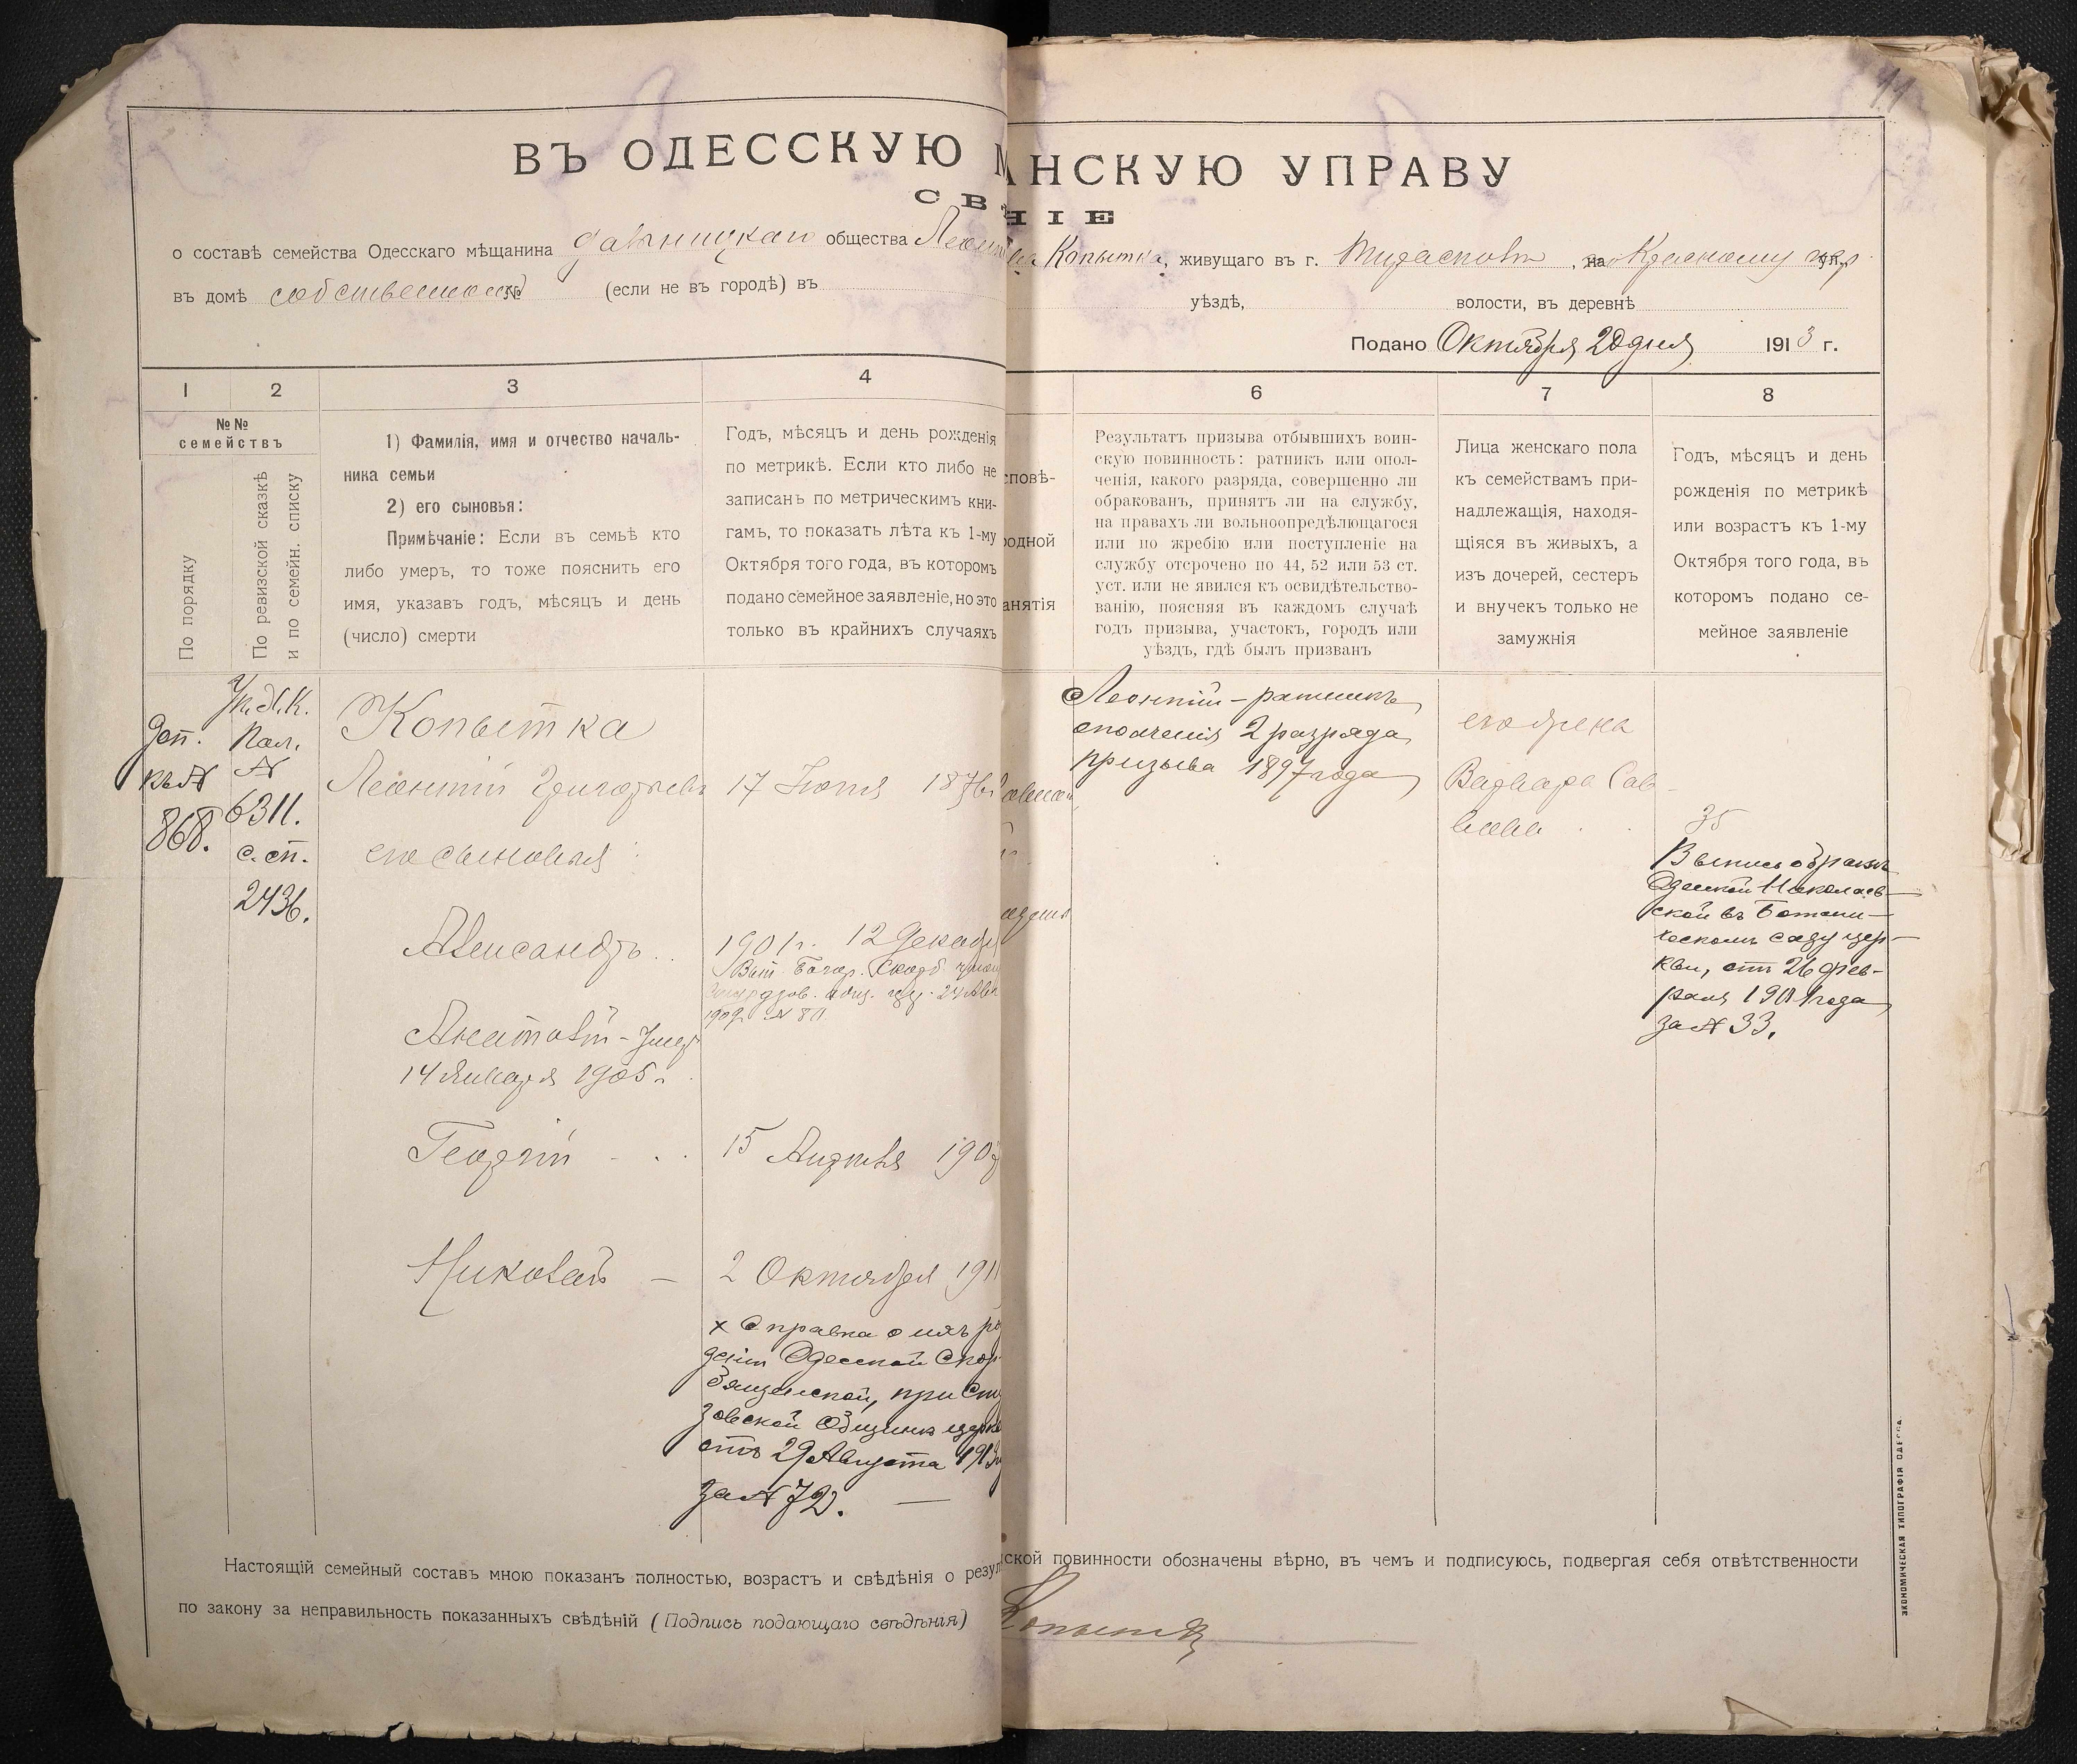 11
ВЪ ОДЕССКУЮ М
АНСКУЮ УПРАВУ
СВѢ
НІЕ
о составѣ семейства Одесскаго мѣщанина общества Леонт
Копытка, живущаго въ г. Тирасполѣ, на Красному пер
въ домѣ собственном № (если не въ городѣ) въ
уѣздѣ, волости, въ деревнѣ
Подано Октября 20 дня 1913 г.
1 2 3 4
6 7 8
№№
семействъ
По порядку
По ревизской сказкѣ
и по семейн. списку
1) Фамилія, имя и отчество началь-
ника семьи
2) его сыновья:
Примѣчаніе: Если въ семьѣ кто
либо умеръ, то тоже пояснить его
имя, указавъ годъ, мѣсяцъ и день
(число) смерти
Годъ, мѣсяцъ и день рожденія
по метрикѣ. Если кто либо не
записанъ по метрическимъ кни-
гамъ, то показать лѣта къ 1-му
Октября того года, въ которомъ
подано семейное заявленіе, но это
только въ крайнихъ случаяхъ
сповѣ-
родной
анятія
Результатъ призыва отбывшихъ воин-
скую повинность: ратникъ или опол-
ченія, какого разряда, совершенно ли
обракованъ, принятъ ли на службу,
на правахъ ли вольноопредѣлющагося
или по жребію или поступленіе на
службу отсрочено по 44, 52 или 53 ст.
уст. или не явился къ освидѣтельство-
ванію, поясняя въ каждомъ случаѣ
годъ призыва, участокъ, городъ или
уѣздъ, гдѣ былъ призванъ
Лица женскаго пола
къ семействамъ при-
надлежащія, находя-
щіяся въ живыхъ, а
изъ дочерей, сестеръ
и внучекъ только не
замужнія
Годъ, мѣсяцъ и день
рожденія по метрикѣ
или возрастъ къ 1-му
Октября того года, въ
которомъ подано се-
мейное заявленіе
Доп.
къ №
868.
Пол.
№
6311.
с. сп.
2436.
Копытка
Леонтій Григорьевъ
его сыновья:
Александръ
Анатолій - умер
14 Января 1905 г.
Георгій
Николай —
17 Іюня 1876 г
1901 г. 12 Декабр
24 Авг
1909 № 80
15 Апрѣля 1907
2 Октября 1911
х Справка о ихъ ро
деніи Одесской Скор
бященской, при Сту
дзовской Общинѣ церкв
отъ 29 Августа 1913
за № 72. —
Леонтій - ратникъ
ополченія 2 разряда
призыва 1897 года
его жена
Варвара Сав-
вова
35
Выпись о бракѣ
Одесской Николаев-
ской въ Ботани-
ческомъ саду цер-
кви, отъ 26 фев-
раля 1901 года
за № 33.
Настоящій семейный составъ мною показанъ полностью, возрастъ и свѣдѣнія о резул
ской повинности обозначены вѣрно, въ чемъ и подписуюсь, подвергая себя отвѣтственности
по закону за неправильность показанныхъ свѣдѣній (Подпись подающаго свѣдѣнія)
Копытка
ЭКОНОМИЧЕСКАЯ ТИПОГРАФІЯ ОДЕССА.